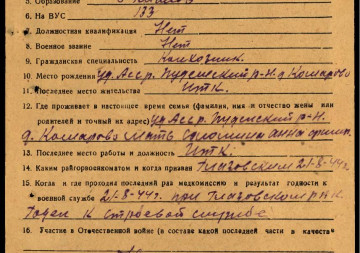 5. Образование
6. На ВУС 133
7. Должностная квалификация Нет
8. Военное звание Нет
9. Гражданская специальность Колхозник.
10. Место рождения Уд. Асср. Пудемский р-н. д. Комарово
11. Последнее место жительства ИТК.
12. Где проживает в настоящее время семья (фамилия, имя и отчество жены или
родителей и точный их адрес) Уд. Асср. Пудемский р-н
д. Комарово мать Соломина Анна
13. Последнее место работы и должность ИТК.
14. Каким райгорвоенкоматом и когда призван Глазовским 21-8-44г.
15. Когда и где проходил последний раз медкомиссию и результат годности к
военной службе 21-8-44г. при Глазовском РВК
Годен к строевой службе
16. Участие в Отечественной войне (в составе какой последней части в качестве